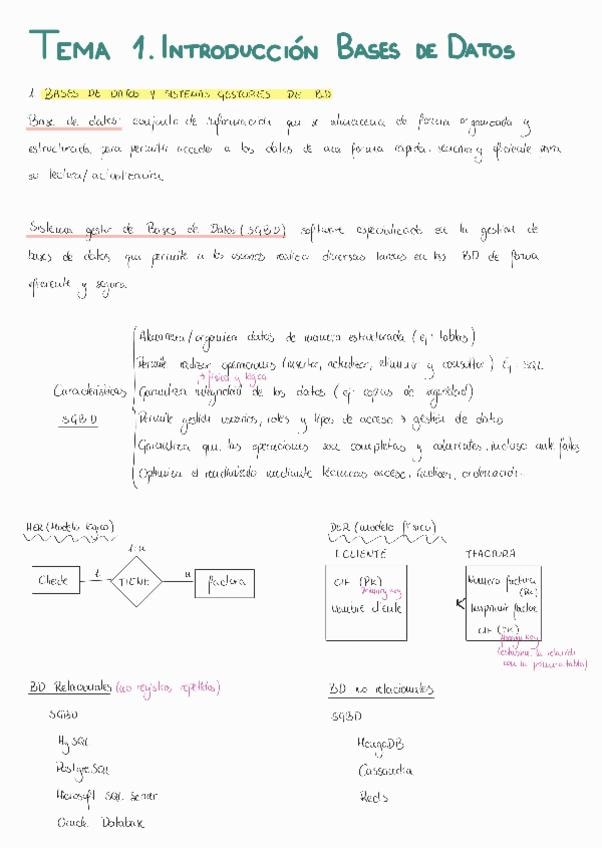 TEMA 1. INTRODUCCIÓN BASES DE DATOS
1. BASES DE DATOS Y SISTEMAS GESTORES DE BD
Base de datos: conjunto de información que se almacena de forma organizada y
estructurada, para permitir acceder a los datos de una forma rápida, segura y eficiente para
su lectura/actualización.
Sistema gestor de Bases de Datos (SGBD) software especializado en la gestión de
bases de datos que permite a los usuarios realizar diversas tareas en las BD de forma
eficiente y segura.
Características
SGBD
Almacena/organiza datos de manera estructurada (ej: tablas)
Permite realizar operaciones (insertar, actualizar, eliminar y consultar) Ej SQL
física y lógica
Garantiza integridad de los datos (ej copias de seguridad)
Permite gestión usuarios, roles y tipos de acceso → gestión de datos
Garantiza que las operaciones son completas y coherentes, incluso ante fallos
Optimiza el rendimiento mediante técnicas acceso, ordenación.
MER (Modelo lógico)
1:N
Cliente
1
TIENE
N
factura
DER (modelo físico)
TCLIENTE
CIF (PK)
Primary key
Nombre cliente
TFACTURA
Número factura
(PK)
Importe factura
CIF (FK)
Foreign key
(establece la relación
con la primera tabla)
BD Relacionales (no registros repetidos)
SGBD
MySQL
PostgreSQL
Microsoft SQL Server
Oracle Database
BD no relacionales
SGBD
MongoDB
Cassandra
Redis